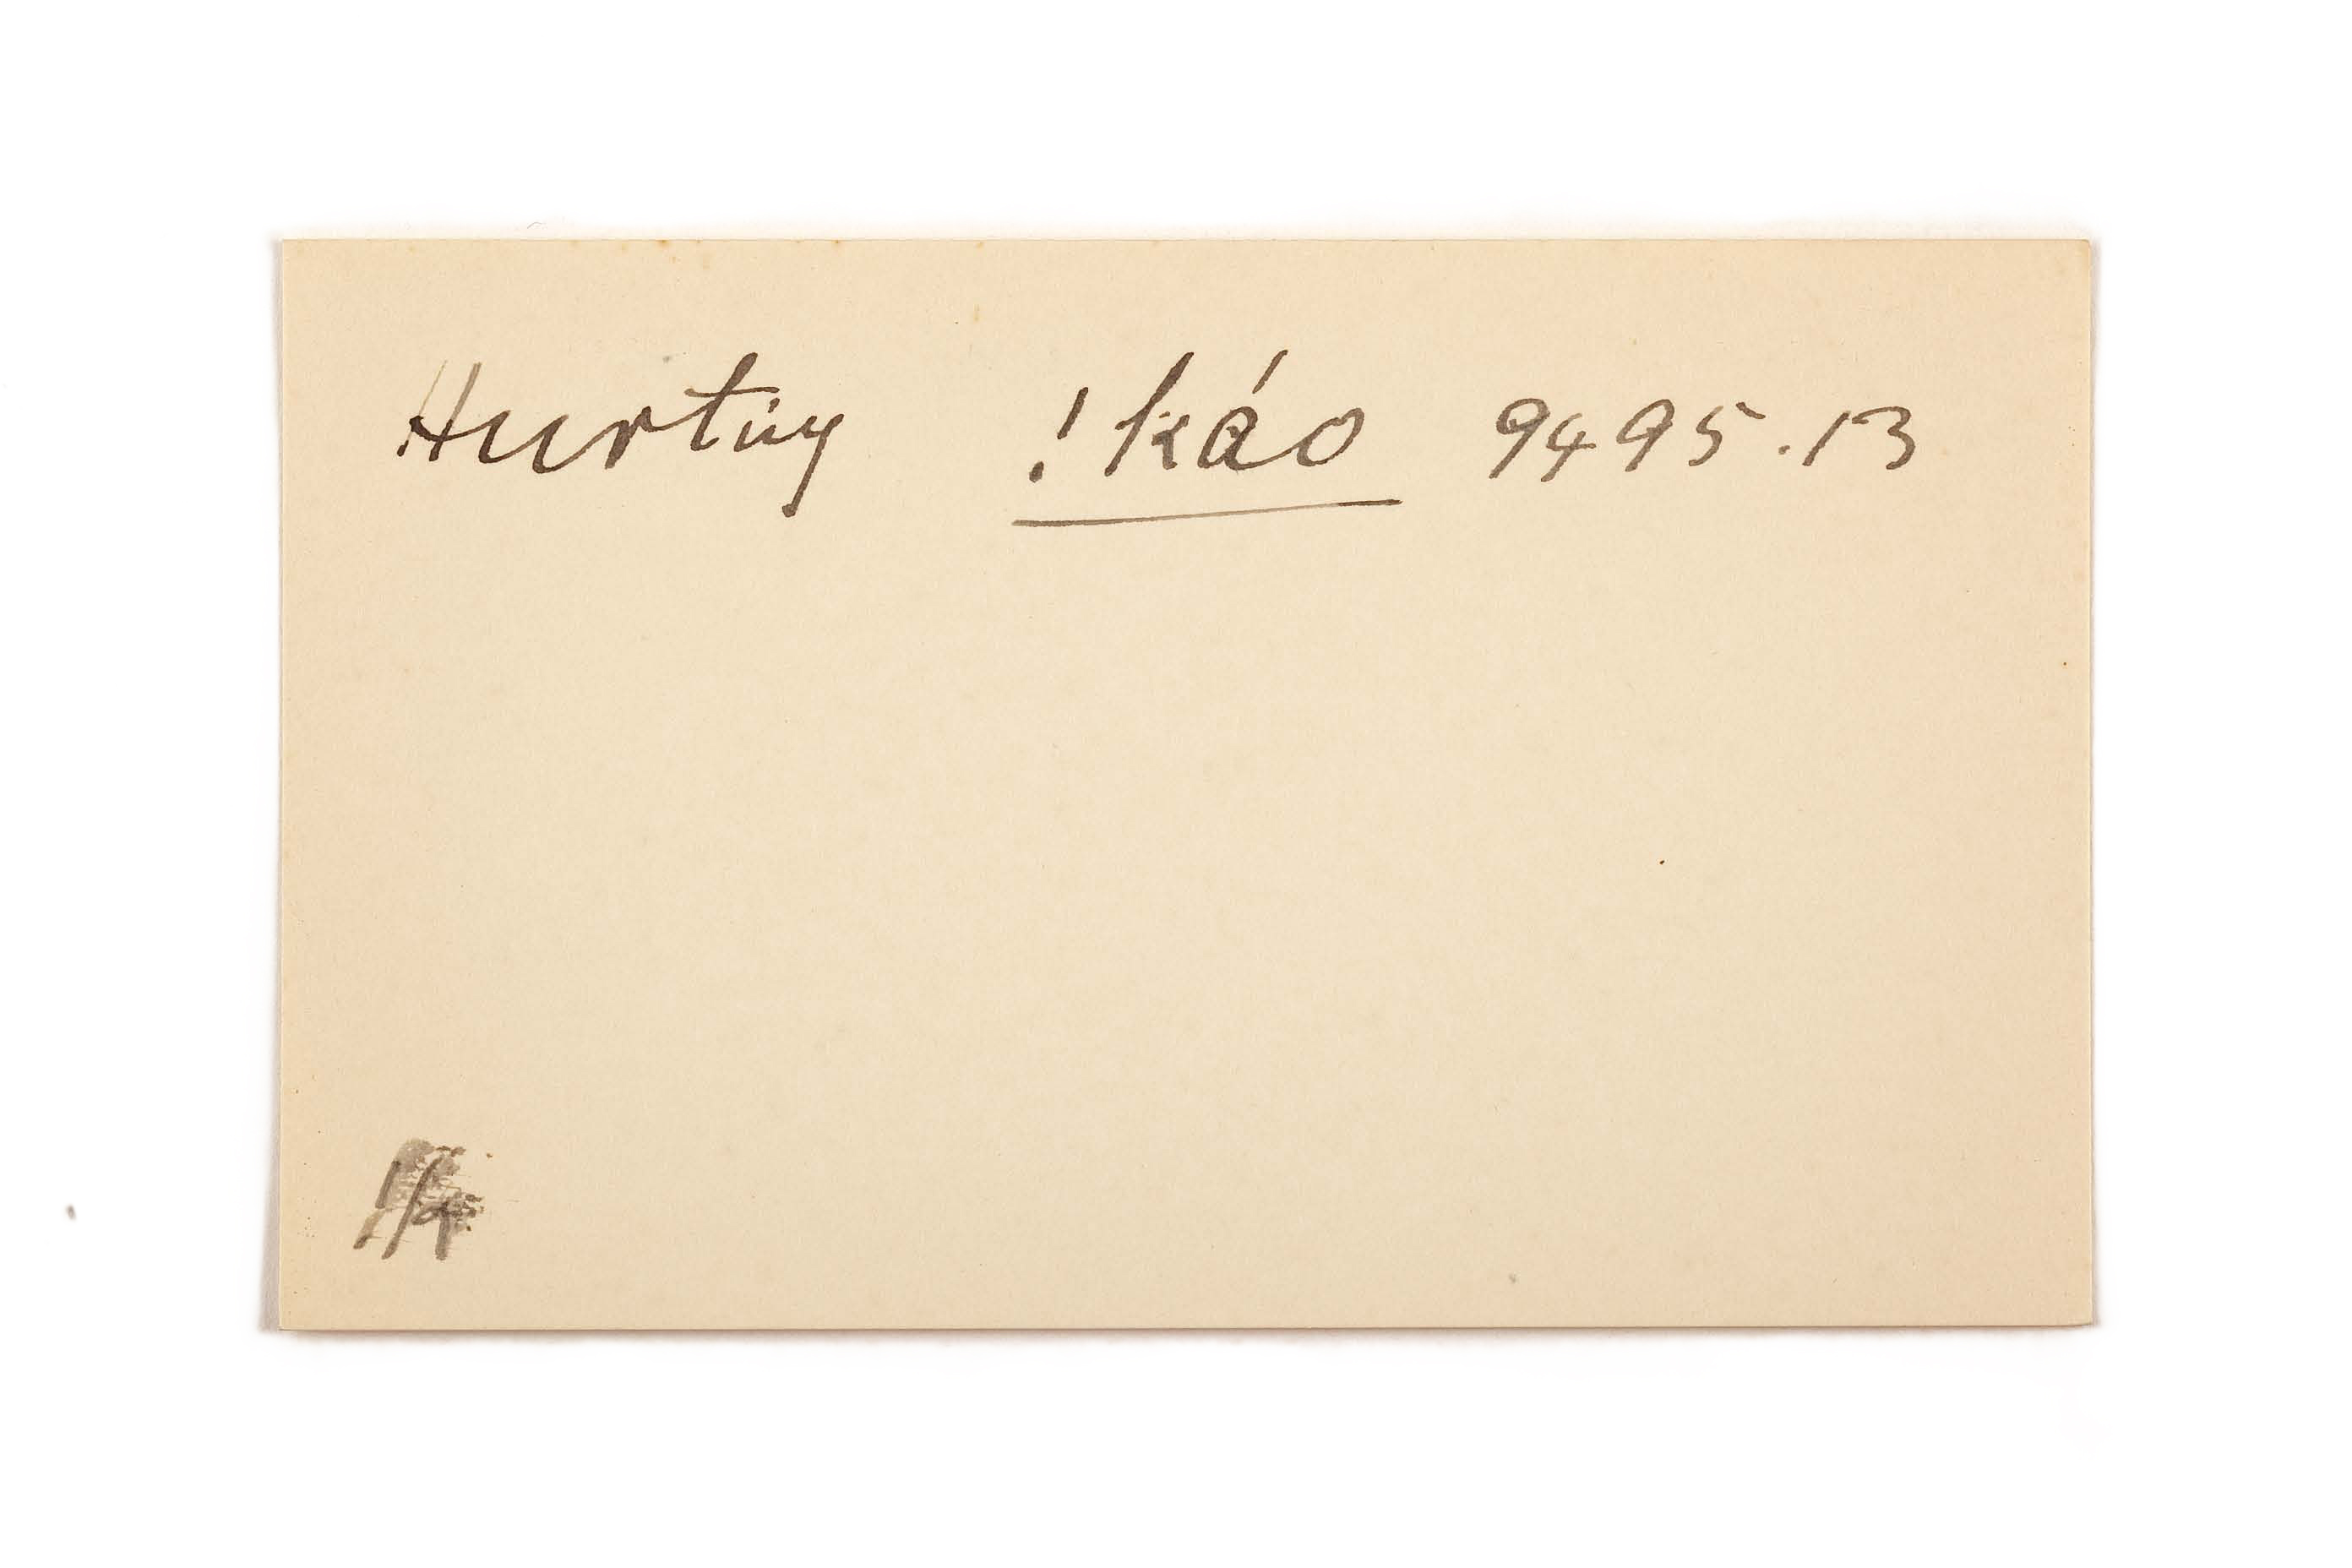 Hurting !káo 9495.13